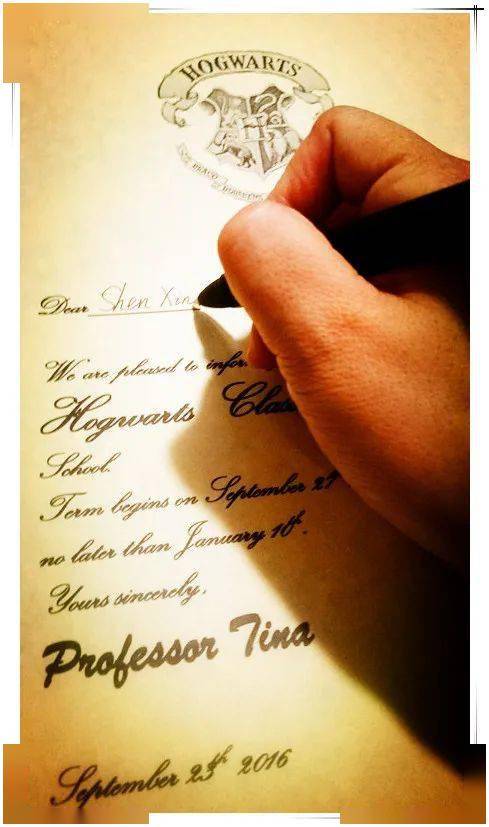 HOGWARTS
Dear Shen Xin
We are pleased to
Hogwarts
School.
Term begins on September
no later than January 10th.
Yours sincerely,
Professor Tina
September 23th 2016